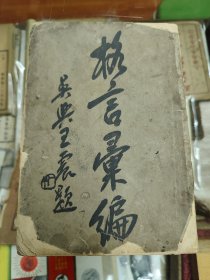 格言彙編
吳興王震題